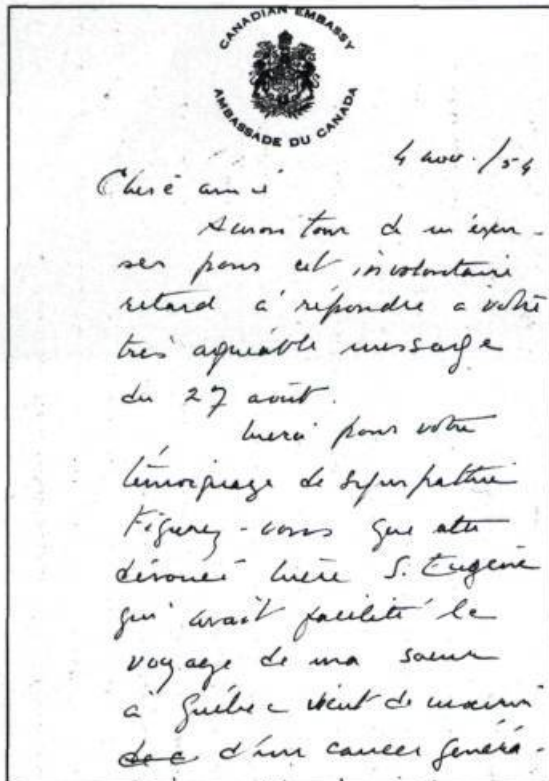 CANADIAN EMBASSY
AMBASSADE DU CANADA
4 nov. /54
Chère amie
de m'excu-
ser pour cet involontaire
retard à répondre à votre
très agréable message
du 27 août.
Merci pour votre
témoignage de sympathie
Figurez-vous que cette
dévouée Mère S. Eugénie
qui avait facilité le
voyage de ma soeur
à Québec vient de mourir
d'un cancer généra-